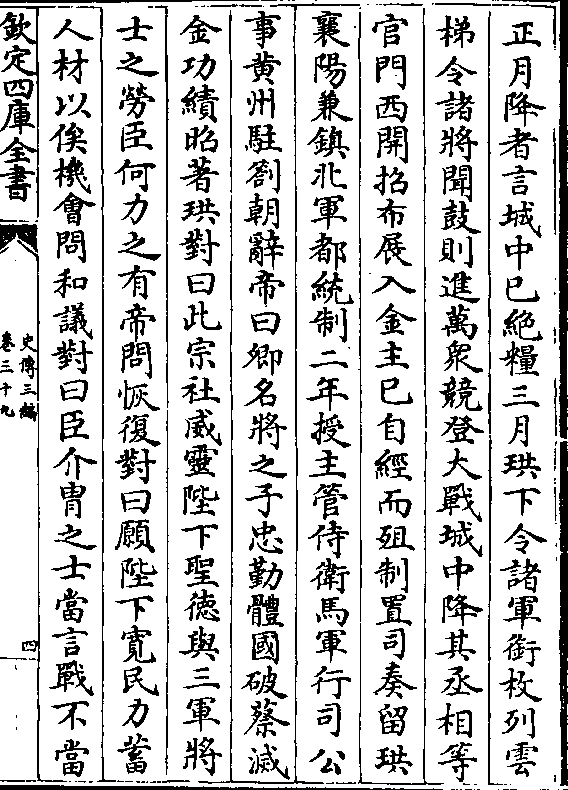 正月降者言城中已絶糧三月珙下令諸軍銜枚列雲
梯令諸將聞鼓則進萬衆競登大戰城中降其丞相等
官門西開招布展入金主已自經而殂制置司奏留珙
襄陽兼鎮北軍都統制二年授主管侍衛馬軍行司公
事黄州駐劄朝辭帝曰卿名將之子忠勤體國破蔡滅
金功績昭著珙對曰此宗社威靈陛下聖德與三軍將
士之勞臣何力之有帝問恢復對曰願陛下寛民力蓄
人材以俟機會問和議對曰臣介胄之士當言戰不當
欽定四庫全書
史傳三編
卷三十九
四